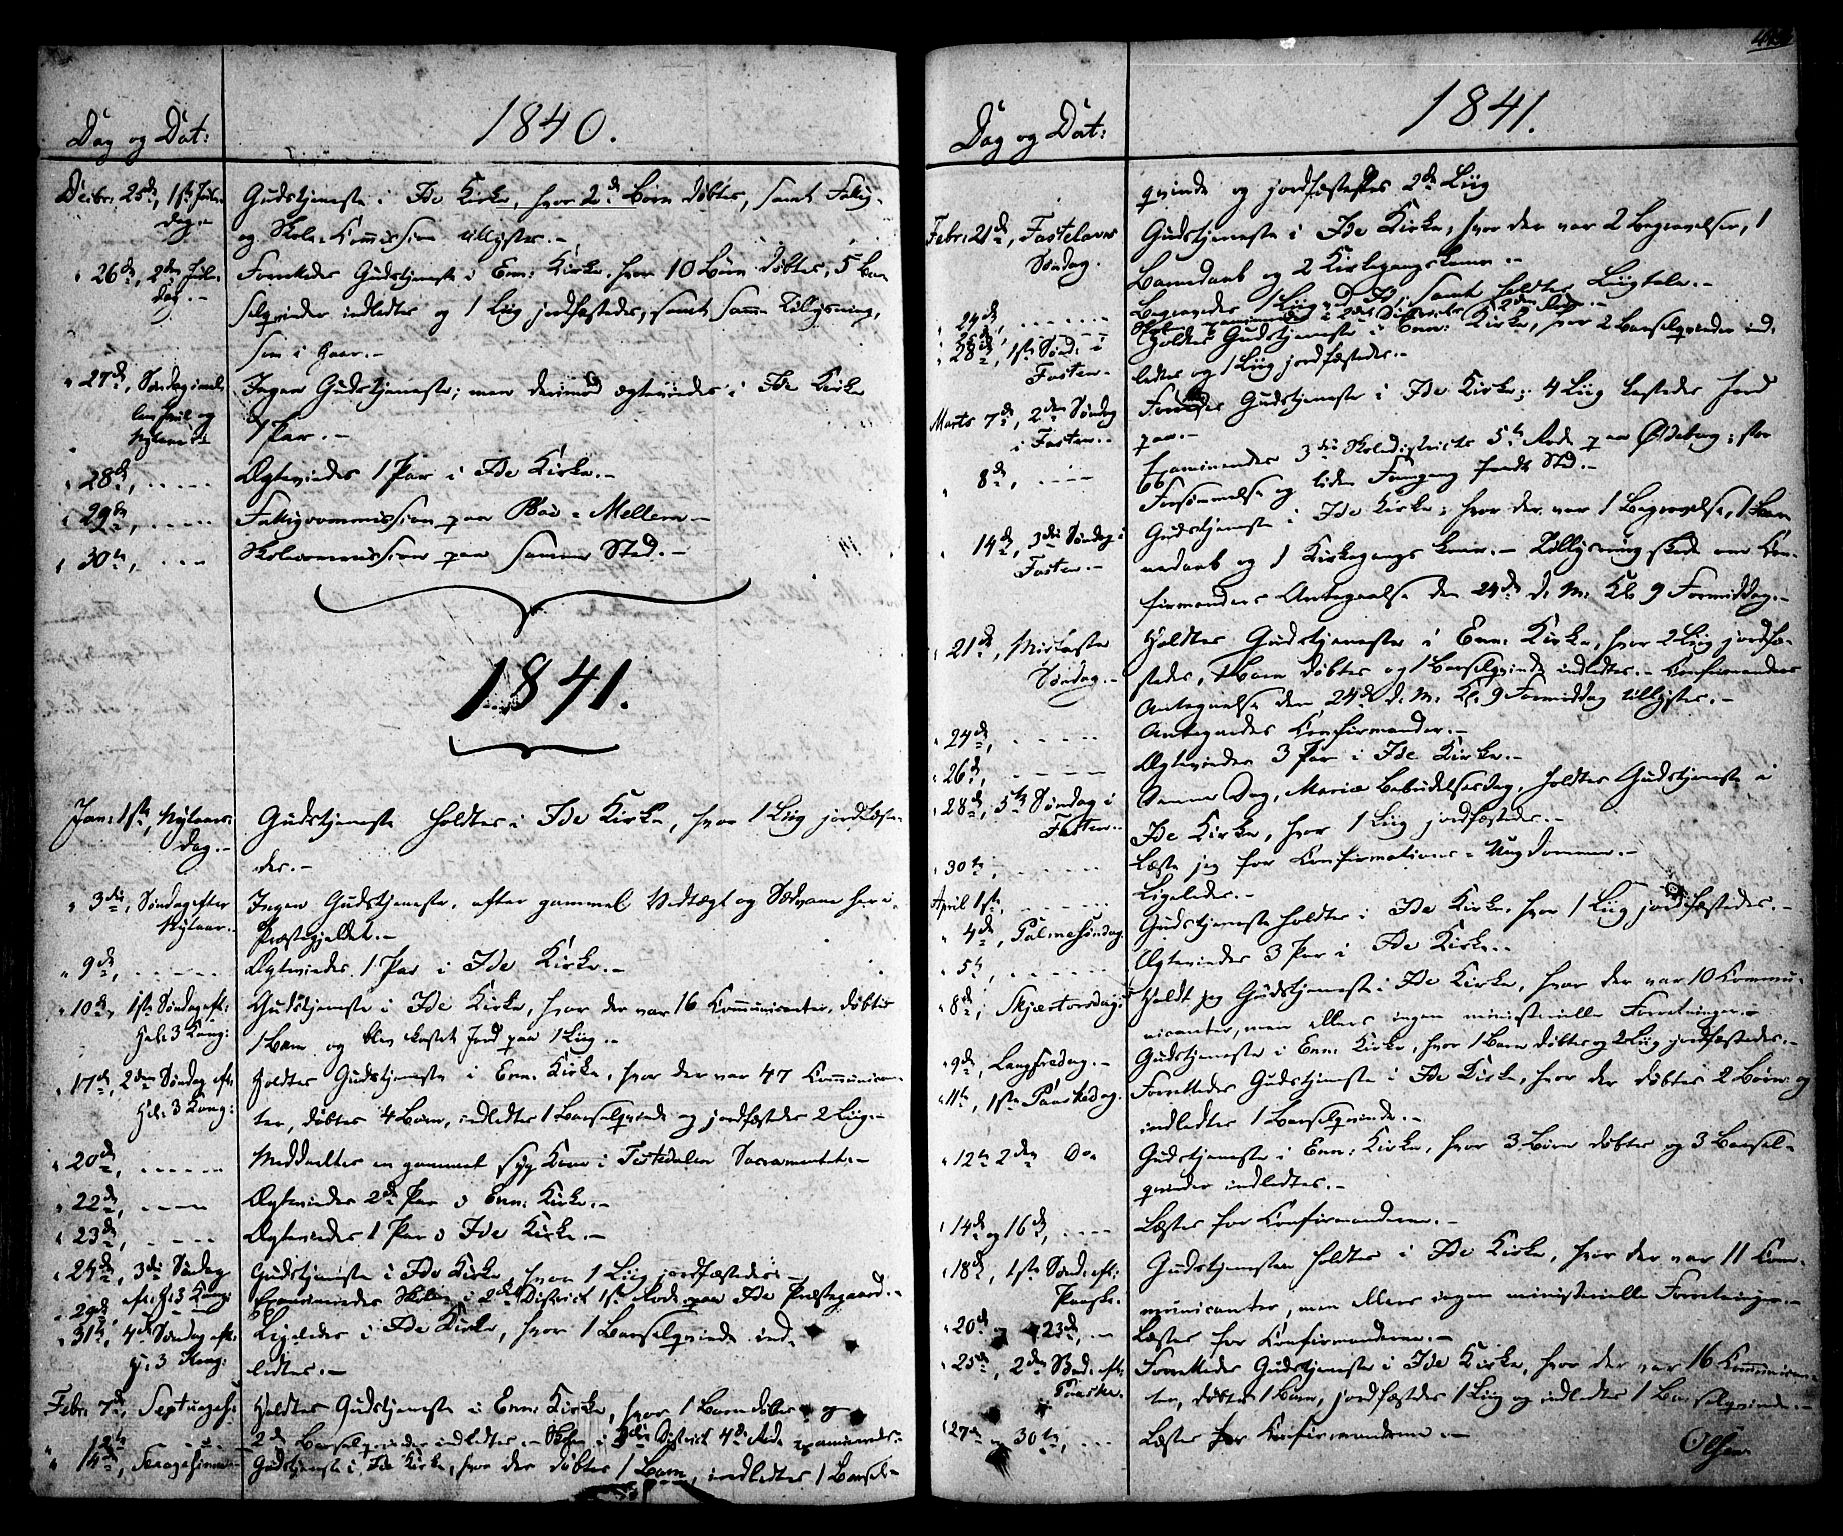 1840.
Dag og Dat:
Decbr: 25de, 1ste Jule-
dag.-
Gudstjeneste i Ide Kirke, hvor 2de Børn døbtes, samt Fattig-
og Skole-Commission tillystes.-
" 26de, 2den Jule-
dag.-
Forrettedes Gudstjeneste i Enn: Kirke, hvor 10 Børn døbtes, 5 Bar-
selqvinder indledtes og 1 Liig jordfæstedes, samt samme Tillysning,
som i Gaar.-
" 27de, Søndag imel-
lem Juul og
Nytaar.-
Ingen Gudstjeneste; men derimod ægteviedes i Ide Kirke
1 Par.-
" 28de, - - - -
Ægteviedes 1 Par i Ide Kirke.-
" 29de, - - - -
Fattigcommission paa Bøe-Mellem-
" 30te, - - -
Skolecommission paa samme Sted.-
1841.
Jan: 1ste, Nytaars-
dag.-
Gudstjeneste holdtes i Ide Kirke, hvor 1 Liig jordfæste-
des.-
" 3die, Søndag efter
Nytaar.-
Ingen Gudstjeneste, efter gammel Vedtægt og Sædvane her i
Præstegjeldet.-
" 9de, - - - -
Ægteviedes 1 Par i Ide Kirke.-
" 10de, 1ste Søndag eft:
Hel: 3 Kong:
Gudstjeneste i Ide Kirke, hvor der var 16 Communicanter, døbtes
1 Barn og blev kastet Jord paa 1 Liig.-
" 17de, 2den Søndag eft:
Hel: 3 Kong:
Holdtes Gudstjeneste i Enn: Kirke, hvor der var 47 Communican-
ter, døbtes 4 Børn, indledtes 1 Barselqvinde og jordfæstedes 2 Liig.-
" 20de, - - - -
Meddeeltes en gammel syg Kone i Tistedalen Sacramentet.-
" 22de, - - - -
Ægteviedes 2de Par i Enn: Kirke.-
" 23de, - - - -
Ægteviedes 1 Par i Ide Kirke.-
" 24de, 3die Søndag
eft: H: 3 Kong:
Gudstjeneste i Ide Kirke, hvor 1 Liig jordfæstedes.-
" 29de,
Examineredes Skolen i 2det District 1ste Rode paa Ide Præstegaard.-
" 31te, 4de Søndag eft:
H: 3 Kong:
Ligeledes i Ide Kirke, hvor 1 Barselqvinde ind-
ledtes.-
Febr: 7de, Septuages:
Holdtes Gudstjeneste i Enn: Kirke, hvor 1 Barn døbtes og
2de Barselqvinder indledtes.- Skolen i 3die District 4de Rode examineredes.
" 14de, Sexagesima.-
Gudstjeneste i Ide Kirke, hvor der døbtes 1 Barn, indledtes 1 Barsel-
1841.
Dag og Dat:
qvinde og jordfæstedes 2de Liig
Febr: 21de, Fastelavns
Søndag.
Gudstjeneste i Ide Kirke, hvor der var 2 Begravelser, 1
Barnedaab og 2 Kirkegangskoner.-
" 24de, - - - -
Begravedes 1 Liig ved Ide, samt holdtes Liigtale.-
" 28de, 1ste Sønd: i
Fasten.-
Holdtes Gudstjeneste i Enn: Kirke, hvor 2 Barselqvinder ind-
ledtes og 1 Liig jordfæstedes.-
Marts 7de, 2den Søndag
i Fasten.-
Gudstjeneste i Ide Kirke; 4 Liig kastedes Jord
paa.-
" 8de, - - -
Examineredes 3die Skoledistricts 5te Rode paa Øideborg; stor
Forsømmelse og liden Fremgang fandt Sted.-
" 14de, 3die Søndag i
Fasten.-
Gudstjeneste i Ide Kirke, hvor der var 1 Begravelse, 1 Bar-
nedaab og 1 Kirkegangskone.- Tillysning skede om Con-
firmanders Antagelse den 24de d. M. Kl: 9 Formiddag.-
" 21de, Midfaste
Søndag.-
Holdtes Gudstjeneste i Enn: Kirke, hvor 2 Liig jordfæ-
stedes, 1 Barn døbtes og 1 Barselqvinde indledtes.- Confirmanders
Antagelse den 24de d. M. Kl: 9 Formiddag tillystes.-
" 24de, - - - -
Antagedes Confirmander.-
" 26de, - - - -
Ægteviedes 3 Par i Ide Kirke.-
" 28de, 5te Søndag i
Fasten.-
Samme Dag, Mariæ Bebudelsesdag, holdtes Gudstjeneste i
Ide Kirke, hvor 1 Liig jordfæstedes.-
" 30te, - - - -
Læste jeg for Confirmations-Ungdommen.-
April 1ste, - - - -
Ligeledes.-
" 4de, Palmesøndag.
Gudstjeneste holdtes i Ide Kirke, hvor 1 Liig jordfæstedes.-
" 5te, - - - -
Ægteviedes 3 Par i Ide Kirke.-
" 8de, Skjærtorsdag;
Holdt jeg Gudstjeneste i Ide Kirke, hvor der var 10 Commu-
nicanter, men ellers ingen ministerielle Forretninger.-
" 9de, Langfredag.-
Gudstjeneste i Enn: Kirke, hvor 1 Barn døbtes og 2 Liig jordfæstedes.-
" 11te, 1ste Paaskedag.
Forrettedes Gudstjeneste i Ide Kirke, hvor der døbtes 2 Børn og
indledtes 1 Barselqvinde.-
" 12te 2den Do
Gudstjeneste i Enn: Kirke, hvor 3 Børn døbtes og 3 Barsel-
qvinder indledtes.-
" 14de og 16de, - - -
Læstes for Confirmanderne.-
" 18de, 1ste Sønd: eft:
Paaske.-
Gudstjenesten holdtes i Ide Kirke, hvor der var 11 Com-
municanter, men ellers ingen ministerielle Forretninger.-
" 20de og 23de, -
Læstes for Confirmanderne.-
" 25de, 2den Sønd: eft:
Paaske.
Forrettedes Gudstjeneste i Ide Kirke, hvor der var 16 Communican-
ter, døbtes 1 Barn, jordfæstedes 1 Liig og indledtes 1 Barselqvinde.-
" 27de - 30te, - - -
Læstes for Confirmanderne.-
Olsen